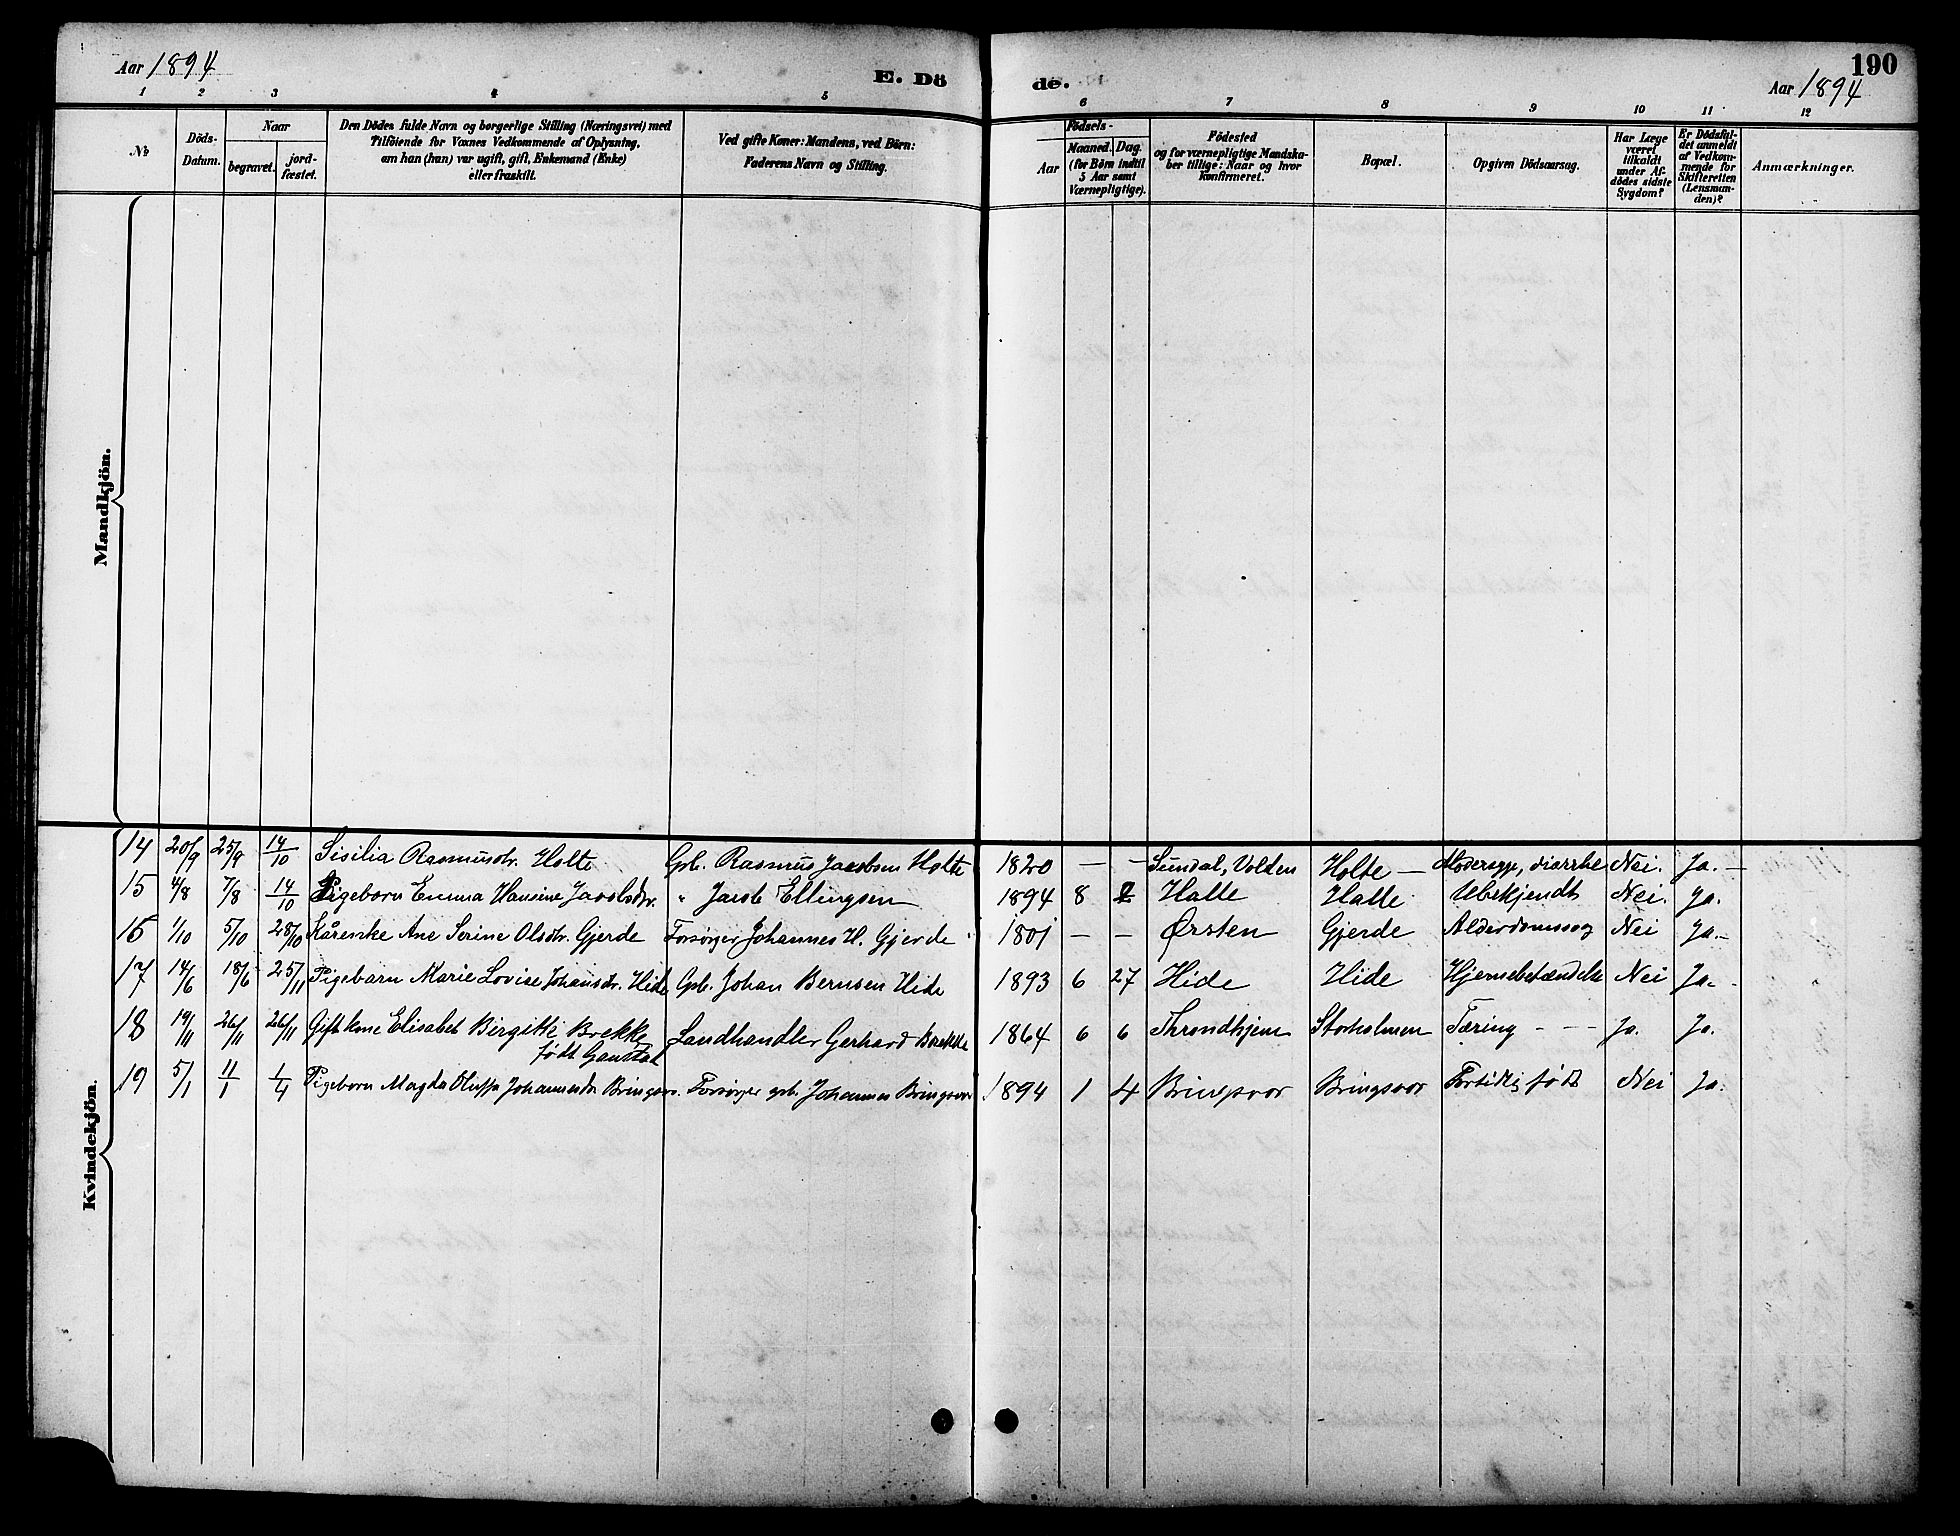 Aar 1894
E. Dö
de.
190
Aar 1894
1 2 3 4 5 6 7 8 9 10 11 12
No
Döds-Datum.
Naar
begravet.
jord-fæstet.
Den Dödes fulde Navn og borgerlige Stilling (Næringsvei) med
Tilföiende for Voxnes Vedkommende af Oplysning,
om han (hun) var ugift, gift, Enkemand (Enke)
eller fraskilt.
Ved gifte Koner: Mandens, ved Börn:
Faderens Navn og Stilling.
Födsels-
Aar
Maaned. Dag.
(for Börn indtil
5 Aar samt
Værnepligtige).
Födested
og for værnepligtige Mandska-
ber tillige: Naar og hvor
konfirmeret.
Bopæl.
Opgiven Dödsaarsag.
Har Læge
været
tilkaldt
under Af-
dödes sidste
Sygdom?
Er Dödsfal-
det anmeldt
af Vedkom-
mende for
Skifteretten
(Lensman-
den)?
Anmærkninger.
Mandkjön.
Kvindekjön.
14 20/9 25/9 14/10 Sisilia Rasmusdr. Holte Gpb. Rasmus Jacobsen Holte 1820 — — Sundal, Volden Holte — diarrhe Nei. Ja. —
15 4/8 7/8 14/10 Pigebarn Emma Hansine Jacobsdr. " Jacob Ellingsen 1894 8 Halle Halle Ubekjendt Nei. Ja.
16 1/10 5/10 28/10 Kårenke Ane Serine Olsdr. Gjerde Forsørger Johannes H. Gjerde 1801 — — Ørsten Gjerde Alderdomssvag Nei Ja. -
17 14/6 18/6 25/11 Pigebarn Marie Lovise Johansdr. Hide Gpb. Johan Bernsen Hide 1893 6 27 Hide Hide Hjernebetændelse Nei Ja. -
18 19/11 26/11 26/11 Gift kone Elisabet Birgitte Brekke Landhandler Gerhard Brekke 1864 6 6 Throndhjem Storholmen Tæring - - - Ja. Ja.
født Ganstad
19 5/1 11/1 1/4 Pigebarn Magda Oluffa Johannesdr. Bringsvor. Forsørger gpb. Johannes Bringsvor 1894 1 4 Bringsvor Bringsvor Fortidlig født Nei Ja.